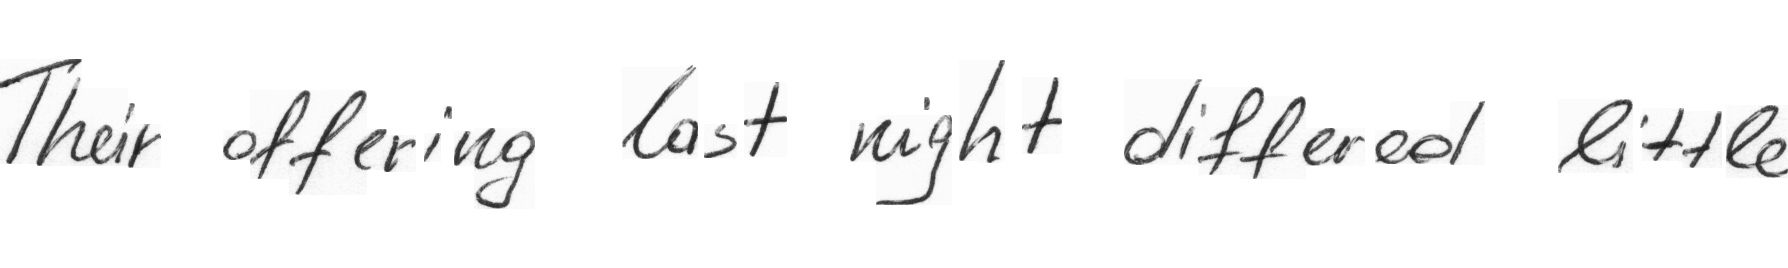 Their offering last night differed little